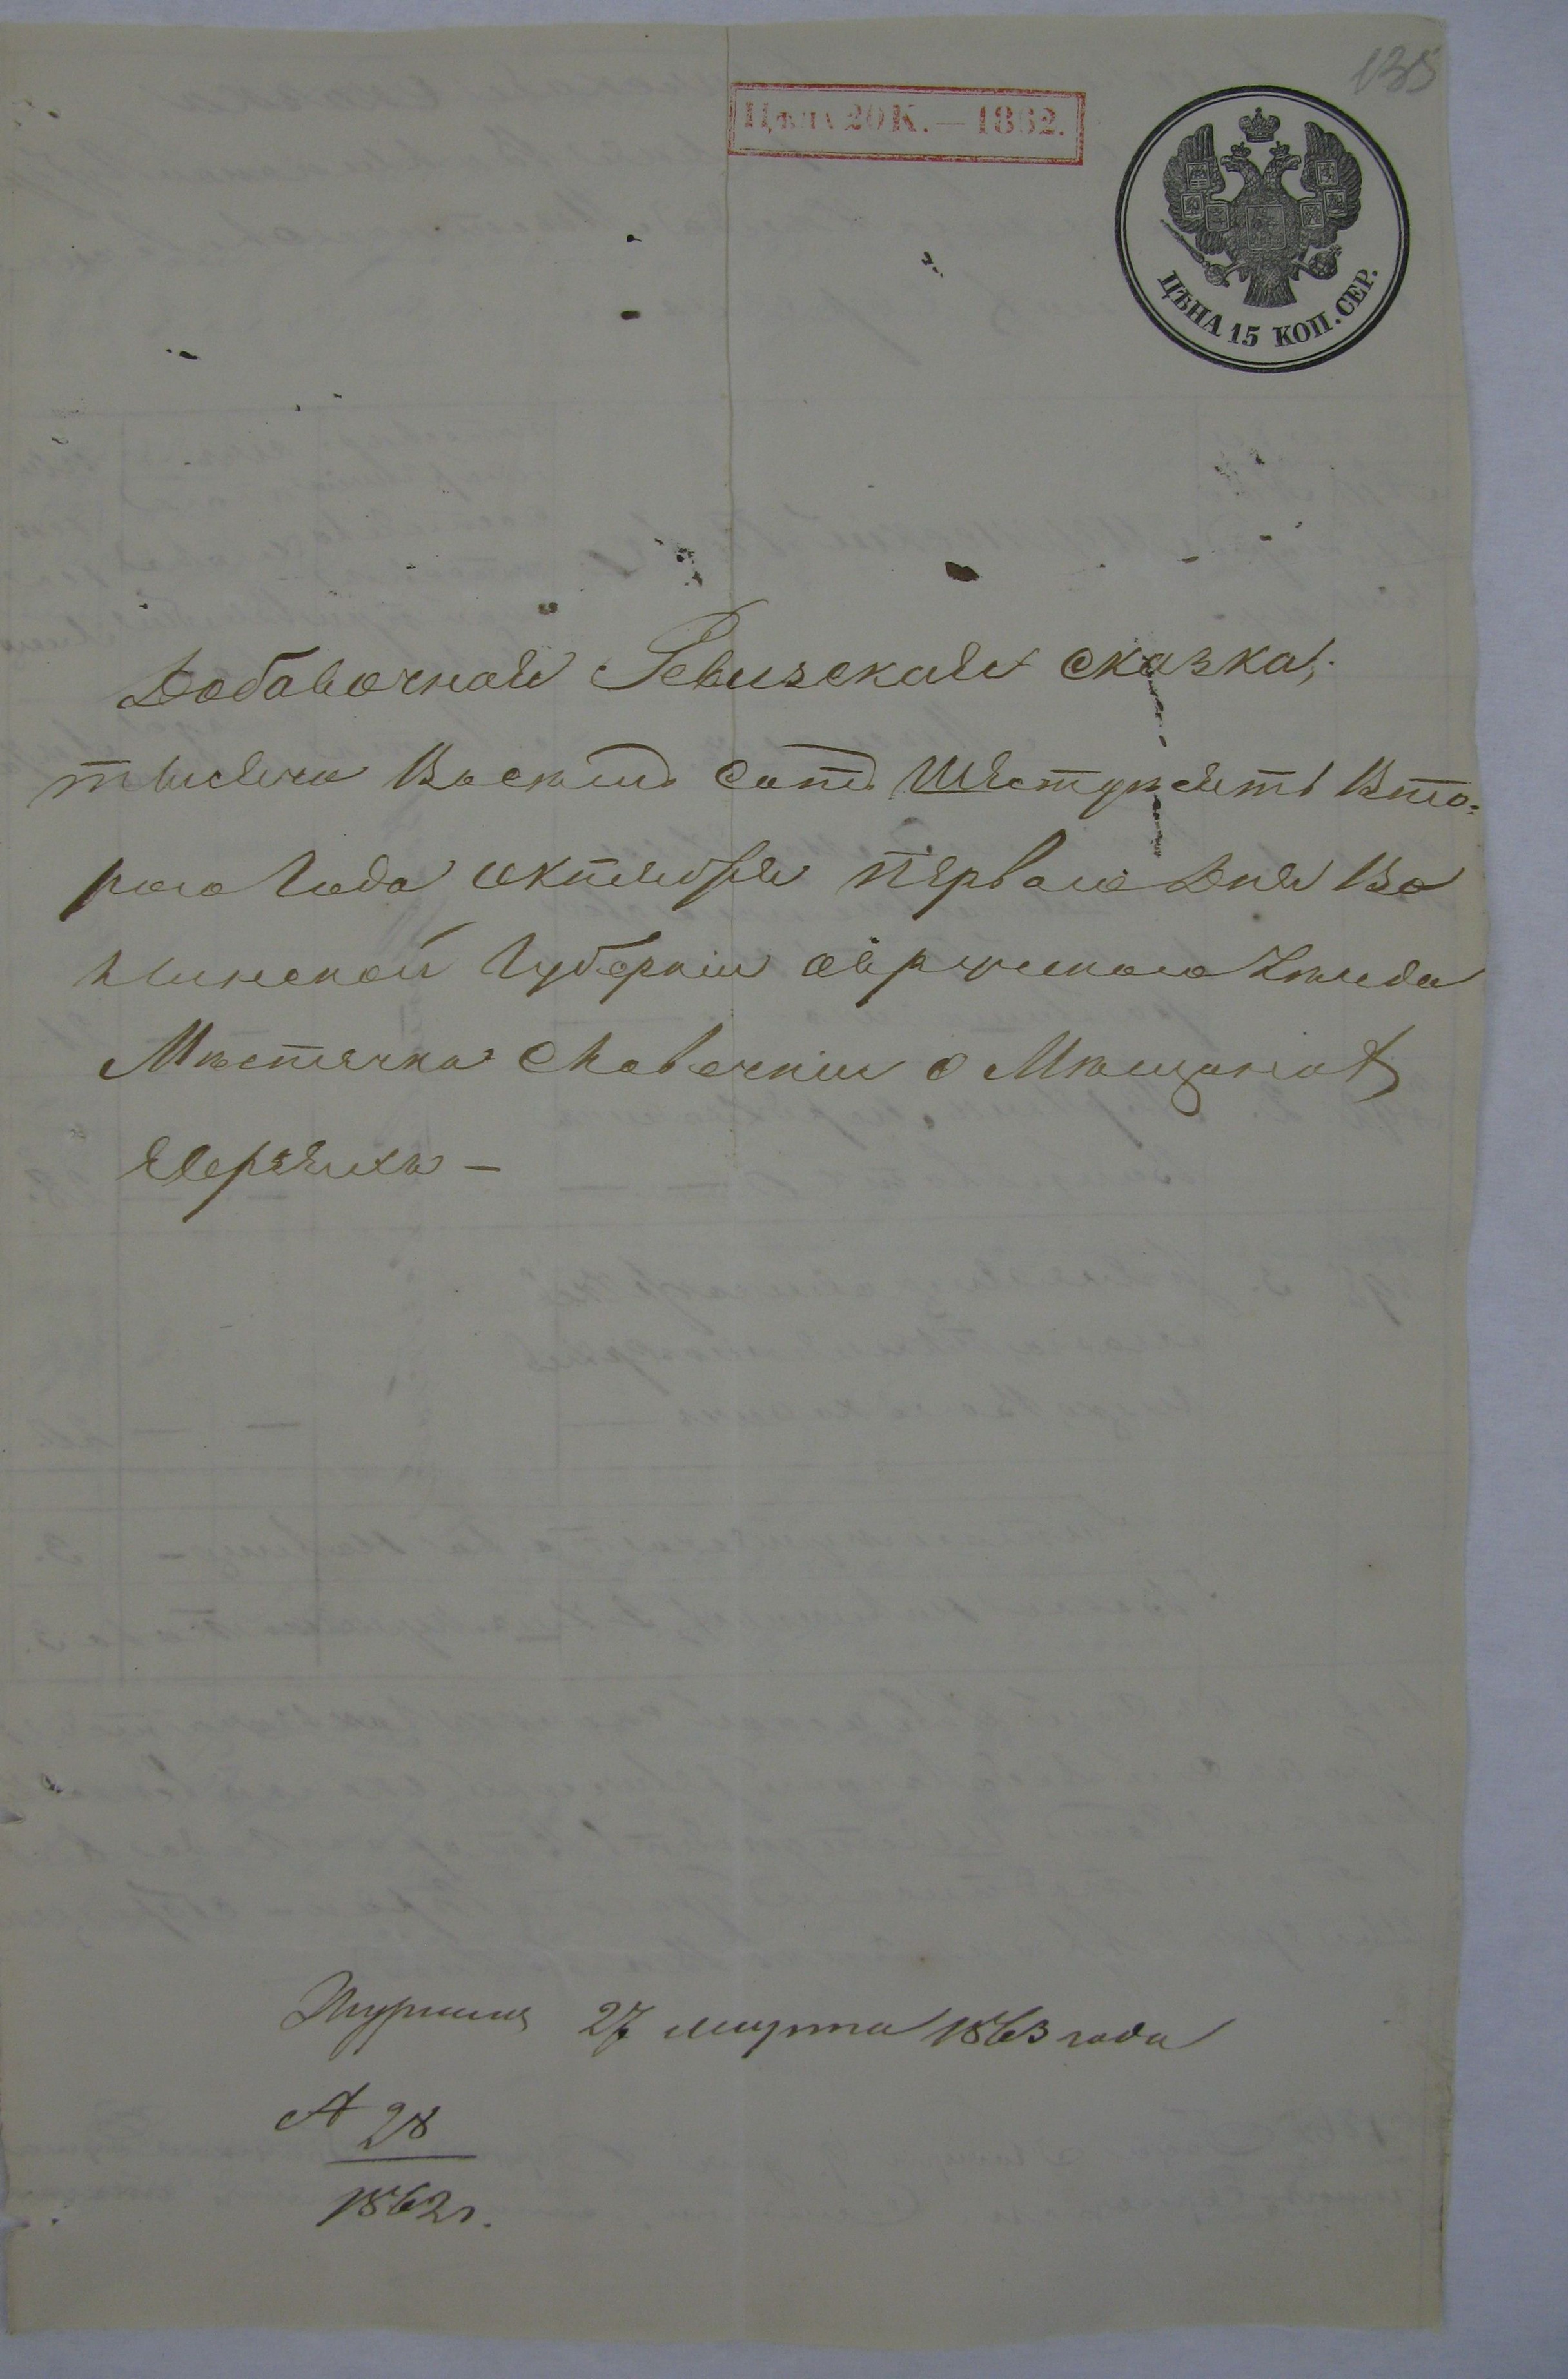 135
Цѣна 20 К. — 1862.
ЦѢНА 15 КОП. СЕР.
Добавочная Ревизская сказка,
тысяча Восѣмъ Сотъ Шестдесятъ Вто-
раго Года октября перваго Дня Во
лынской Губерніи овручскаго Уѣзда
Мѣстечка Словечни о Мѣщанах
Евреяхъ —
Журнал 27 марта 1863 года
А 28
1862г.